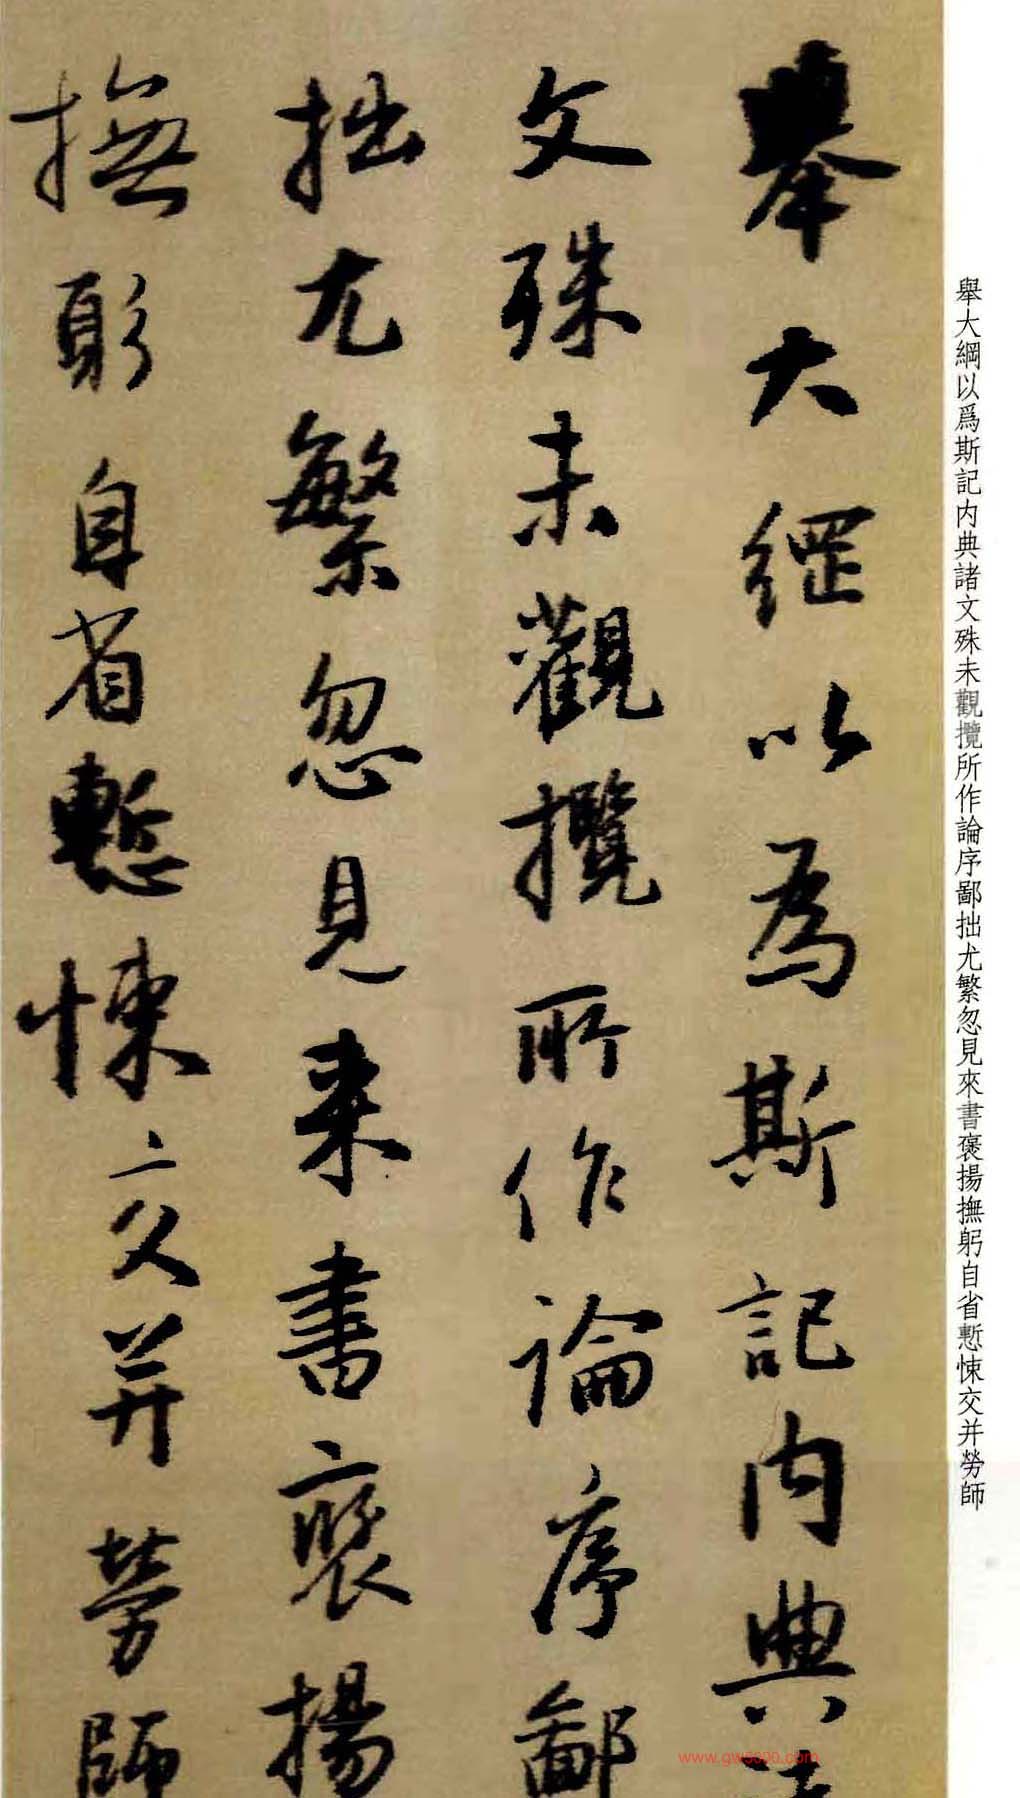 舉大綱以爲斯記内典諸文殊未觀攬所作論序鄙拙尤繁忽見來書褒揚撫躬自省慙悚交并勞師
舉大綱以為斯記内典諸
文殊未觀攬所作論序鄙
拙尤繁忽見来書褒揚
撫躬自省慙悚交并勞師
www.gw5000.com